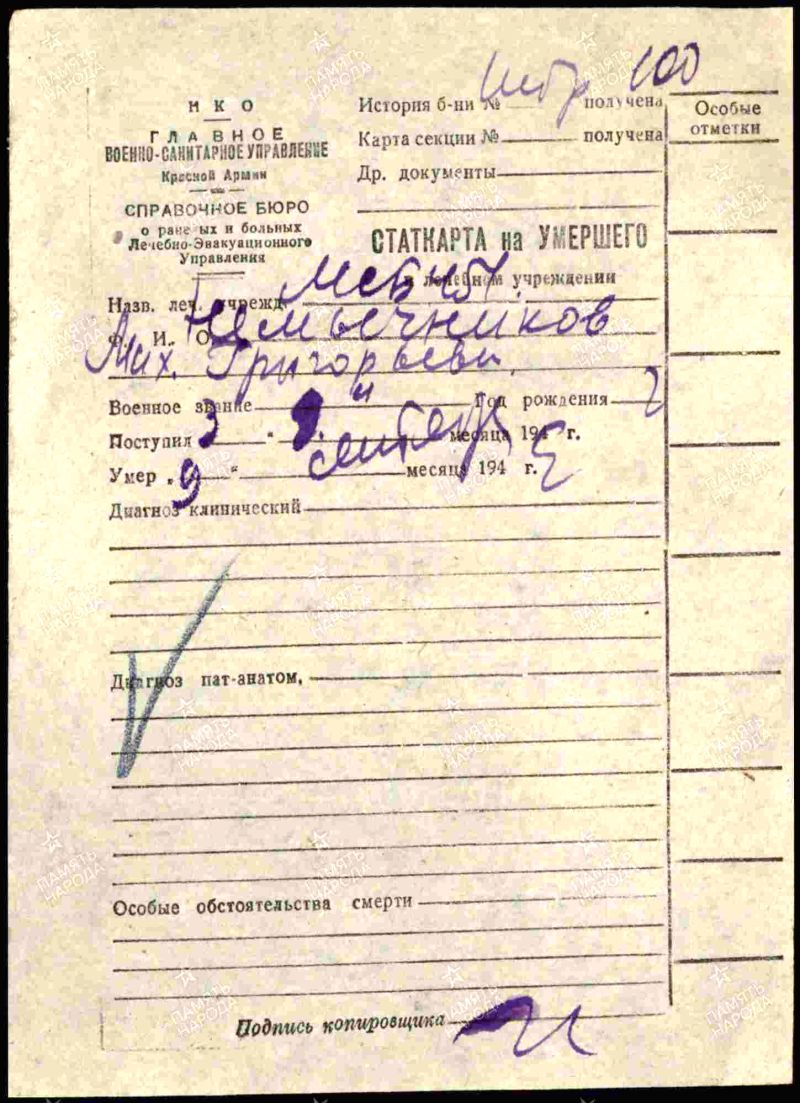 НКО
ГЛАВНОЕ
ВОЕННО-САНИТАРНОЕ УПРАВЛЕНИЕ
Красной Армии
СПРАВОЧНОЕ БЮРО
о раненых и больных
Лечебно-Эвакуационного
Управления
100
История б-ни № получена
Карта секции № получена
Др. документы
Особые
отметки
СТАТКАРТА на УМЕРШЕГО
в лечебном учреждении
Назв. леч. учрежд.
Ф. И. О.
Мих. Григорьеви
Военное звание Год рождения
Поступил 3 " месяца 194 г.
Умер „9" сентябр месяца 194 г.
Диагноз клинический
Диагноз пат-анатом.
Особые обстоятельства смерти
Подпись копировщика
ПАМЯТЬ
НАРОДА